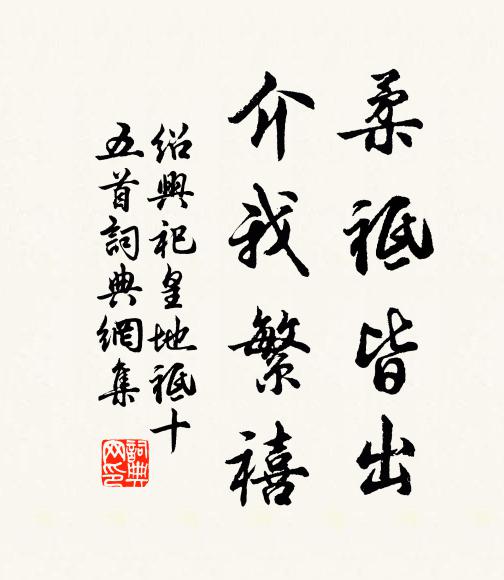 柔祇皆出
介我繁禧
紹興祀皇地祇十
五首詞典網集
詞典
网印